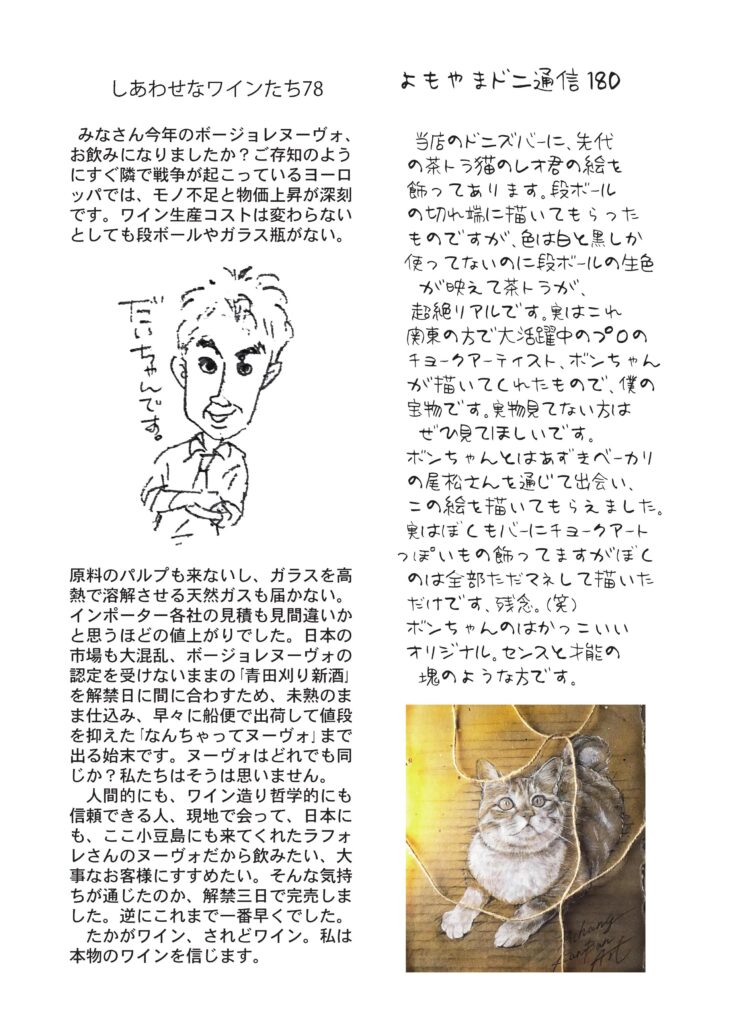 しあわせなワインたち78
みなさん今年のボージョレヌーヴォ、
お飲みになりましたか？ご存知のよう
にすぐ隣で戦争が起こっているヨーロ
ッパでは、モノ不足と物価上昇が深刻
です。ワイン生産コストは変わらない
としても段ボールやガラス瓶がない。
だいちゃんです。
原料のパルプも来ないし、ガラスを高
熱で溶解させる天然ガスも届かない。
インポーター各社の見積も見間違いか
と思うほどの値上がりでした。日本の
市場も大混乱、ボージョレヌーヴォの
認定を受けないままの「青田刈り新酒」
を解禁日に間に合わすため、未熟のま
ま仕込み、早々に船便で出荷して値段
を抑えた「なんちゃってヌーヴォ」まで
出る始末です。ヌーヴォはどれでも同
じか？私たちはそうは思いません。
人間的にも、ワイン造り哲学的にも
信頼できる人、現地で会って、日本に
も、ここ小豆島にも来てくれたラフォ
レさんのヌーヴォだから飲みたい、大
事なお客様にすすめたい。そんな気持
ちが通じたのか、解禁三日で完売しま
した。逆にこれまで一番早くでした。
たかがワイン、されどワイン。私は
本物のワインを信じます。
よもやまドニ通信180
当店のドニズバーに、先代
の茶トラ猫のレオ君の絵を
飾ってあります。段ボール
の切れ端に描いてもらった
ものですが、色は白と黒しか
使ってないのに段ボールの生色
が映えて茶トラが、
超絶リアルです。実はこれ
関東の方で大活躍中のプロの
チョークアーティスト、ボンちゃん
が描いてくれたもので、僕の
宝物です。実物見てない方は
ぜひ見てほしいです。
ボンちゃんとはあずきベーカリ
の尾松さんを通じて出会い、
この絵を描いてもらえました。
実はぼくもバーにチョークアート
っぽいもの飾ってますがぼく
のは全部ただマネして描いた
だけです、残念。(笑)
ボンちゃんのはかっこいい
オリジナル。センスと才能の
塊のような方です。
Art